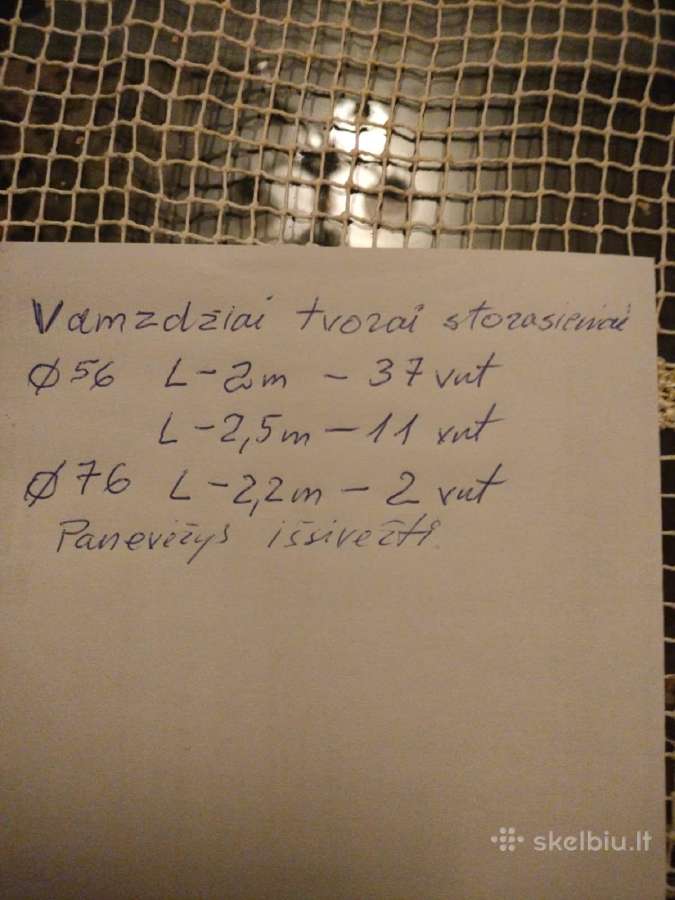 Vamzdžiai tvorai storasieniai
Ø56 L-2m - 37 vnt
L-2,5m - 11 vnt
Ø76 L-2,2m - 2 vnt
Panevėžys išsivežti.
skelbiu.lt